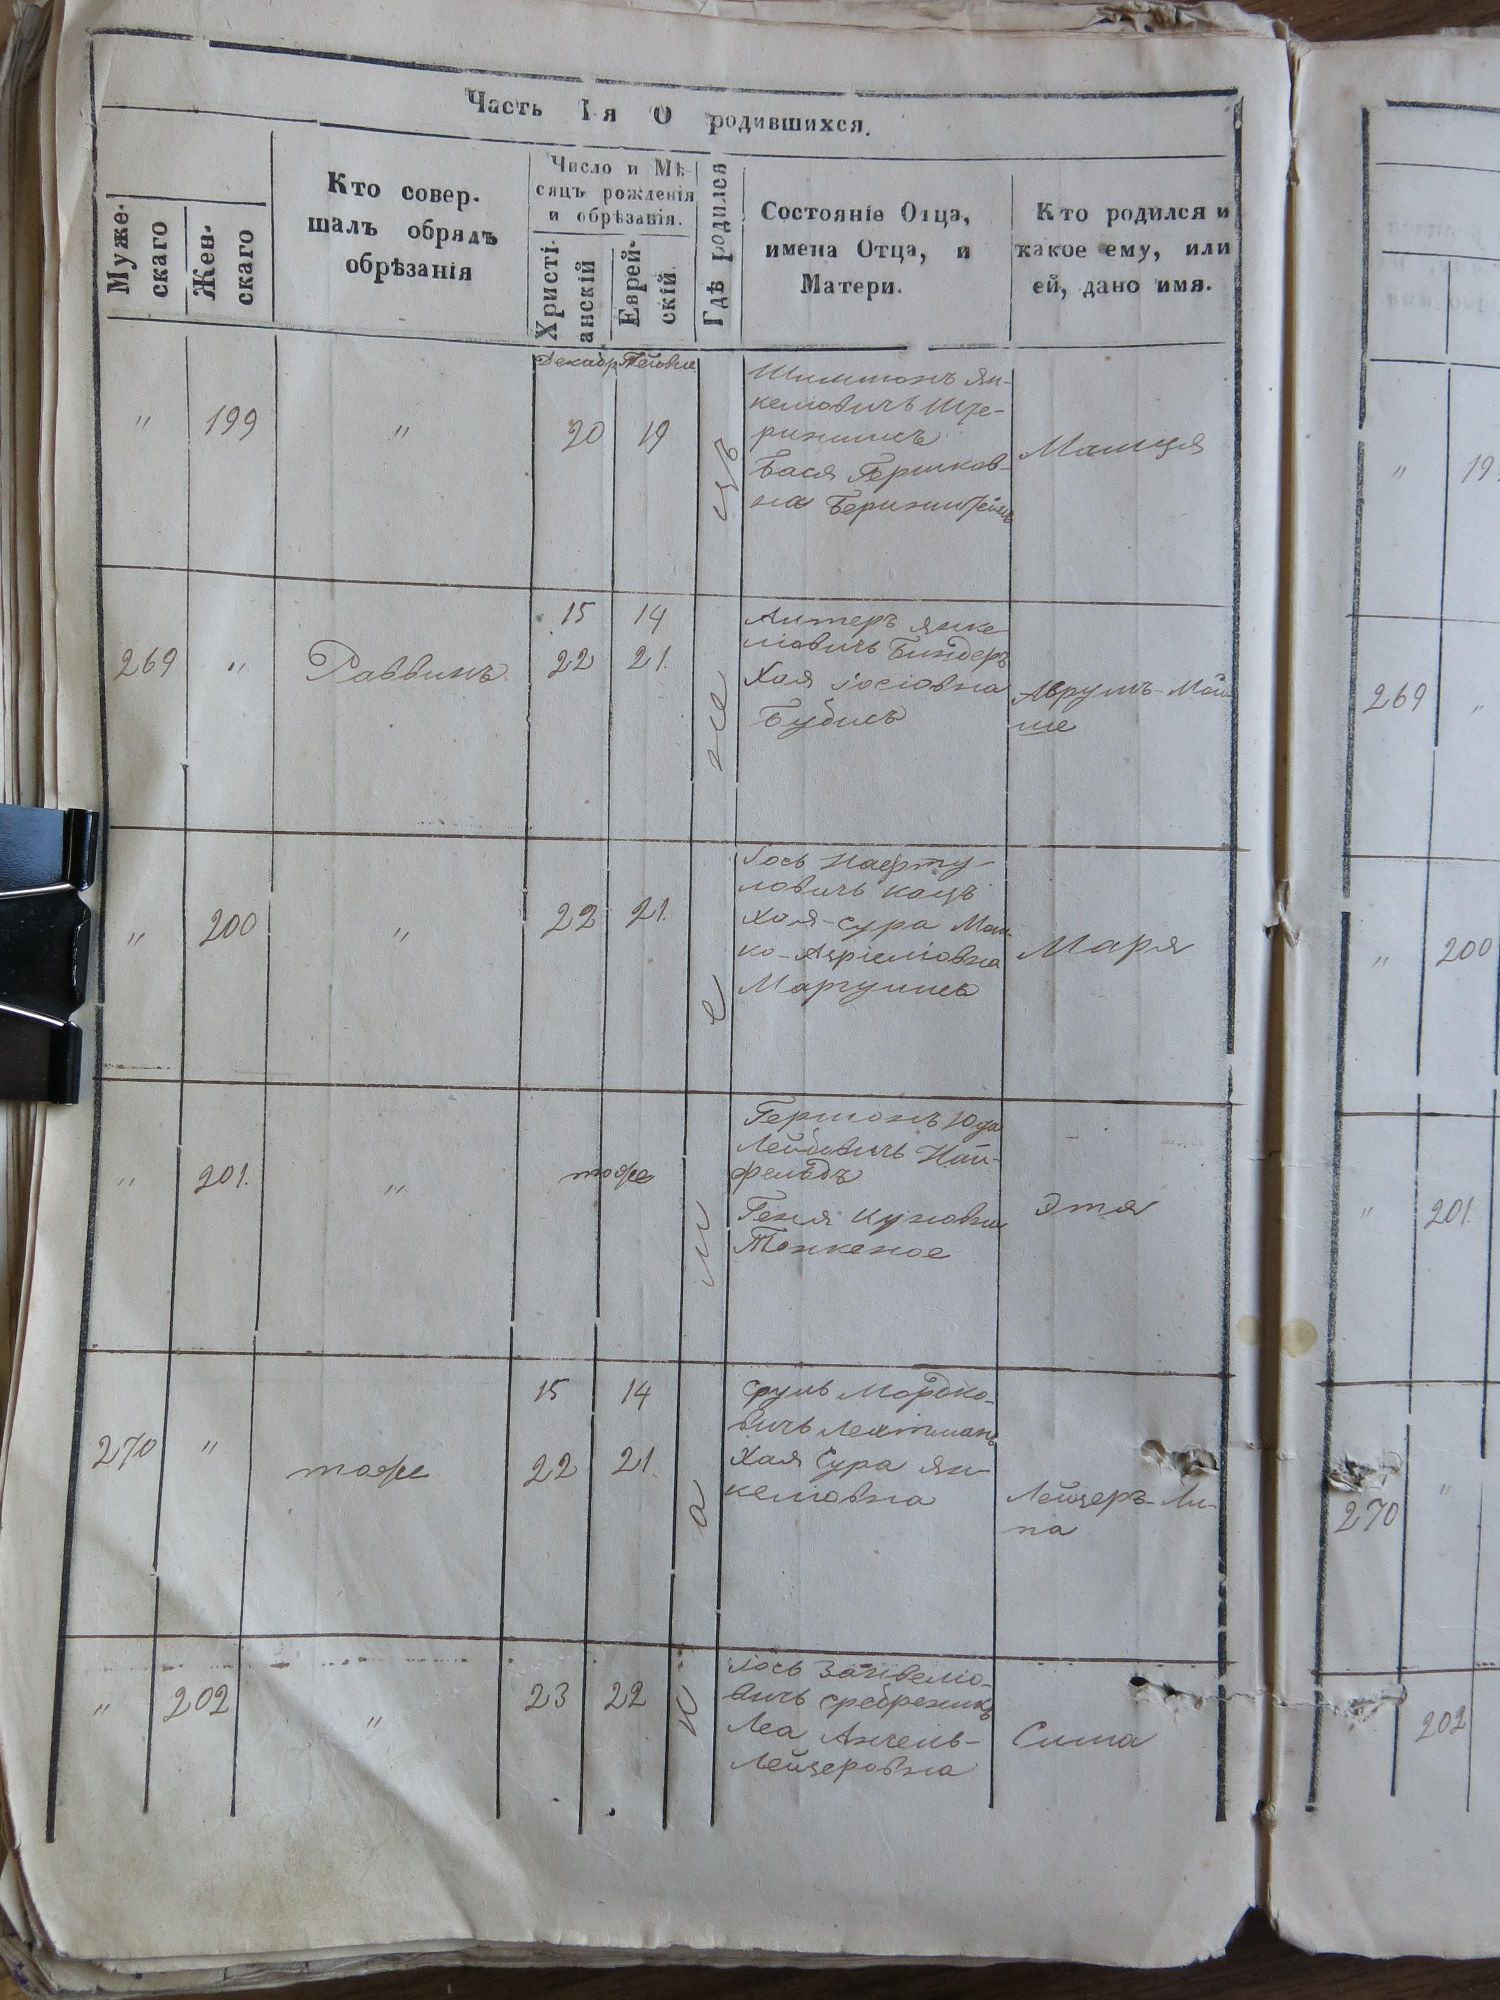 Часть I я О родившихся.
Муже-
скаго
Жен-
скаго
Кто совер-
шалъ обрядъ
обрѣзанія
Число и Мѣ-
сяцъ рожденія
и обрѣзанія.
Христі-
анскій
Еврей-
скій
Гдѣ родился
Состояніе Отца,
имена Отца, и
Матери.
Кто родился и
какое ему, или
ей, дано имя.
Декабр
" 199 " 20 19
Шлиомонъ Ян-
келіовичъ
Бася Гершков-
на
269 " Раввинъ
15 14
22 21.
Алтеръ Янке
ліовичъ Биндеръ
Хая Іосіовна
Бубисъ
Аврумъ-Мой-
ше
" 200 " 22 21.
Іось Нафту-
ловичъ Кацъ
Хая-Сура
Маргулисъ
Маря
" 201. " тоже
Лейбовичъ Най-
фельдъ
Геня
Этя
270 " тоже
15 14
22 21.
Сруль Мордко-
вичъ
Хая Сура Ян-
келіовна
Лейзеръ-Ли-
па
" 202 " 23 22
Іось Зайвеліо-
вичъ Сребреникъ
Леа Анчель-
Лейзеровна
Сима
К а м е н е ц ъ
19
269 "
" 200
" 201.
270 "
202